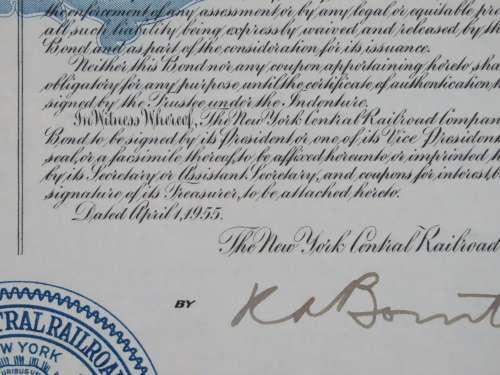 the enforcement of any assessment or by any legal or equitable pro
all such liability being expressly waived and released by th
Bond and as part of the consideration for its issuance.
Neither this Bond nor any coupon appertaining hereto sha
obligatory for any purpose until the certificate of authentication h
signed by the Trustee under the Indenture.
In Witness Whereof, The New York Central Railroad Compan
Bond to be signed by its President or one of its Vice Presidents
seal, or a facsimile thereof, to be affixed hereunto or imprinted
by its Secretary or Assistant Secretary, and coupons for interest, b
signature of its Treasurer, to be attached hereto.
Dated April 1, 1955.
The New York Central Railroad
BY
TRAL RAILROAD
NEW YORK